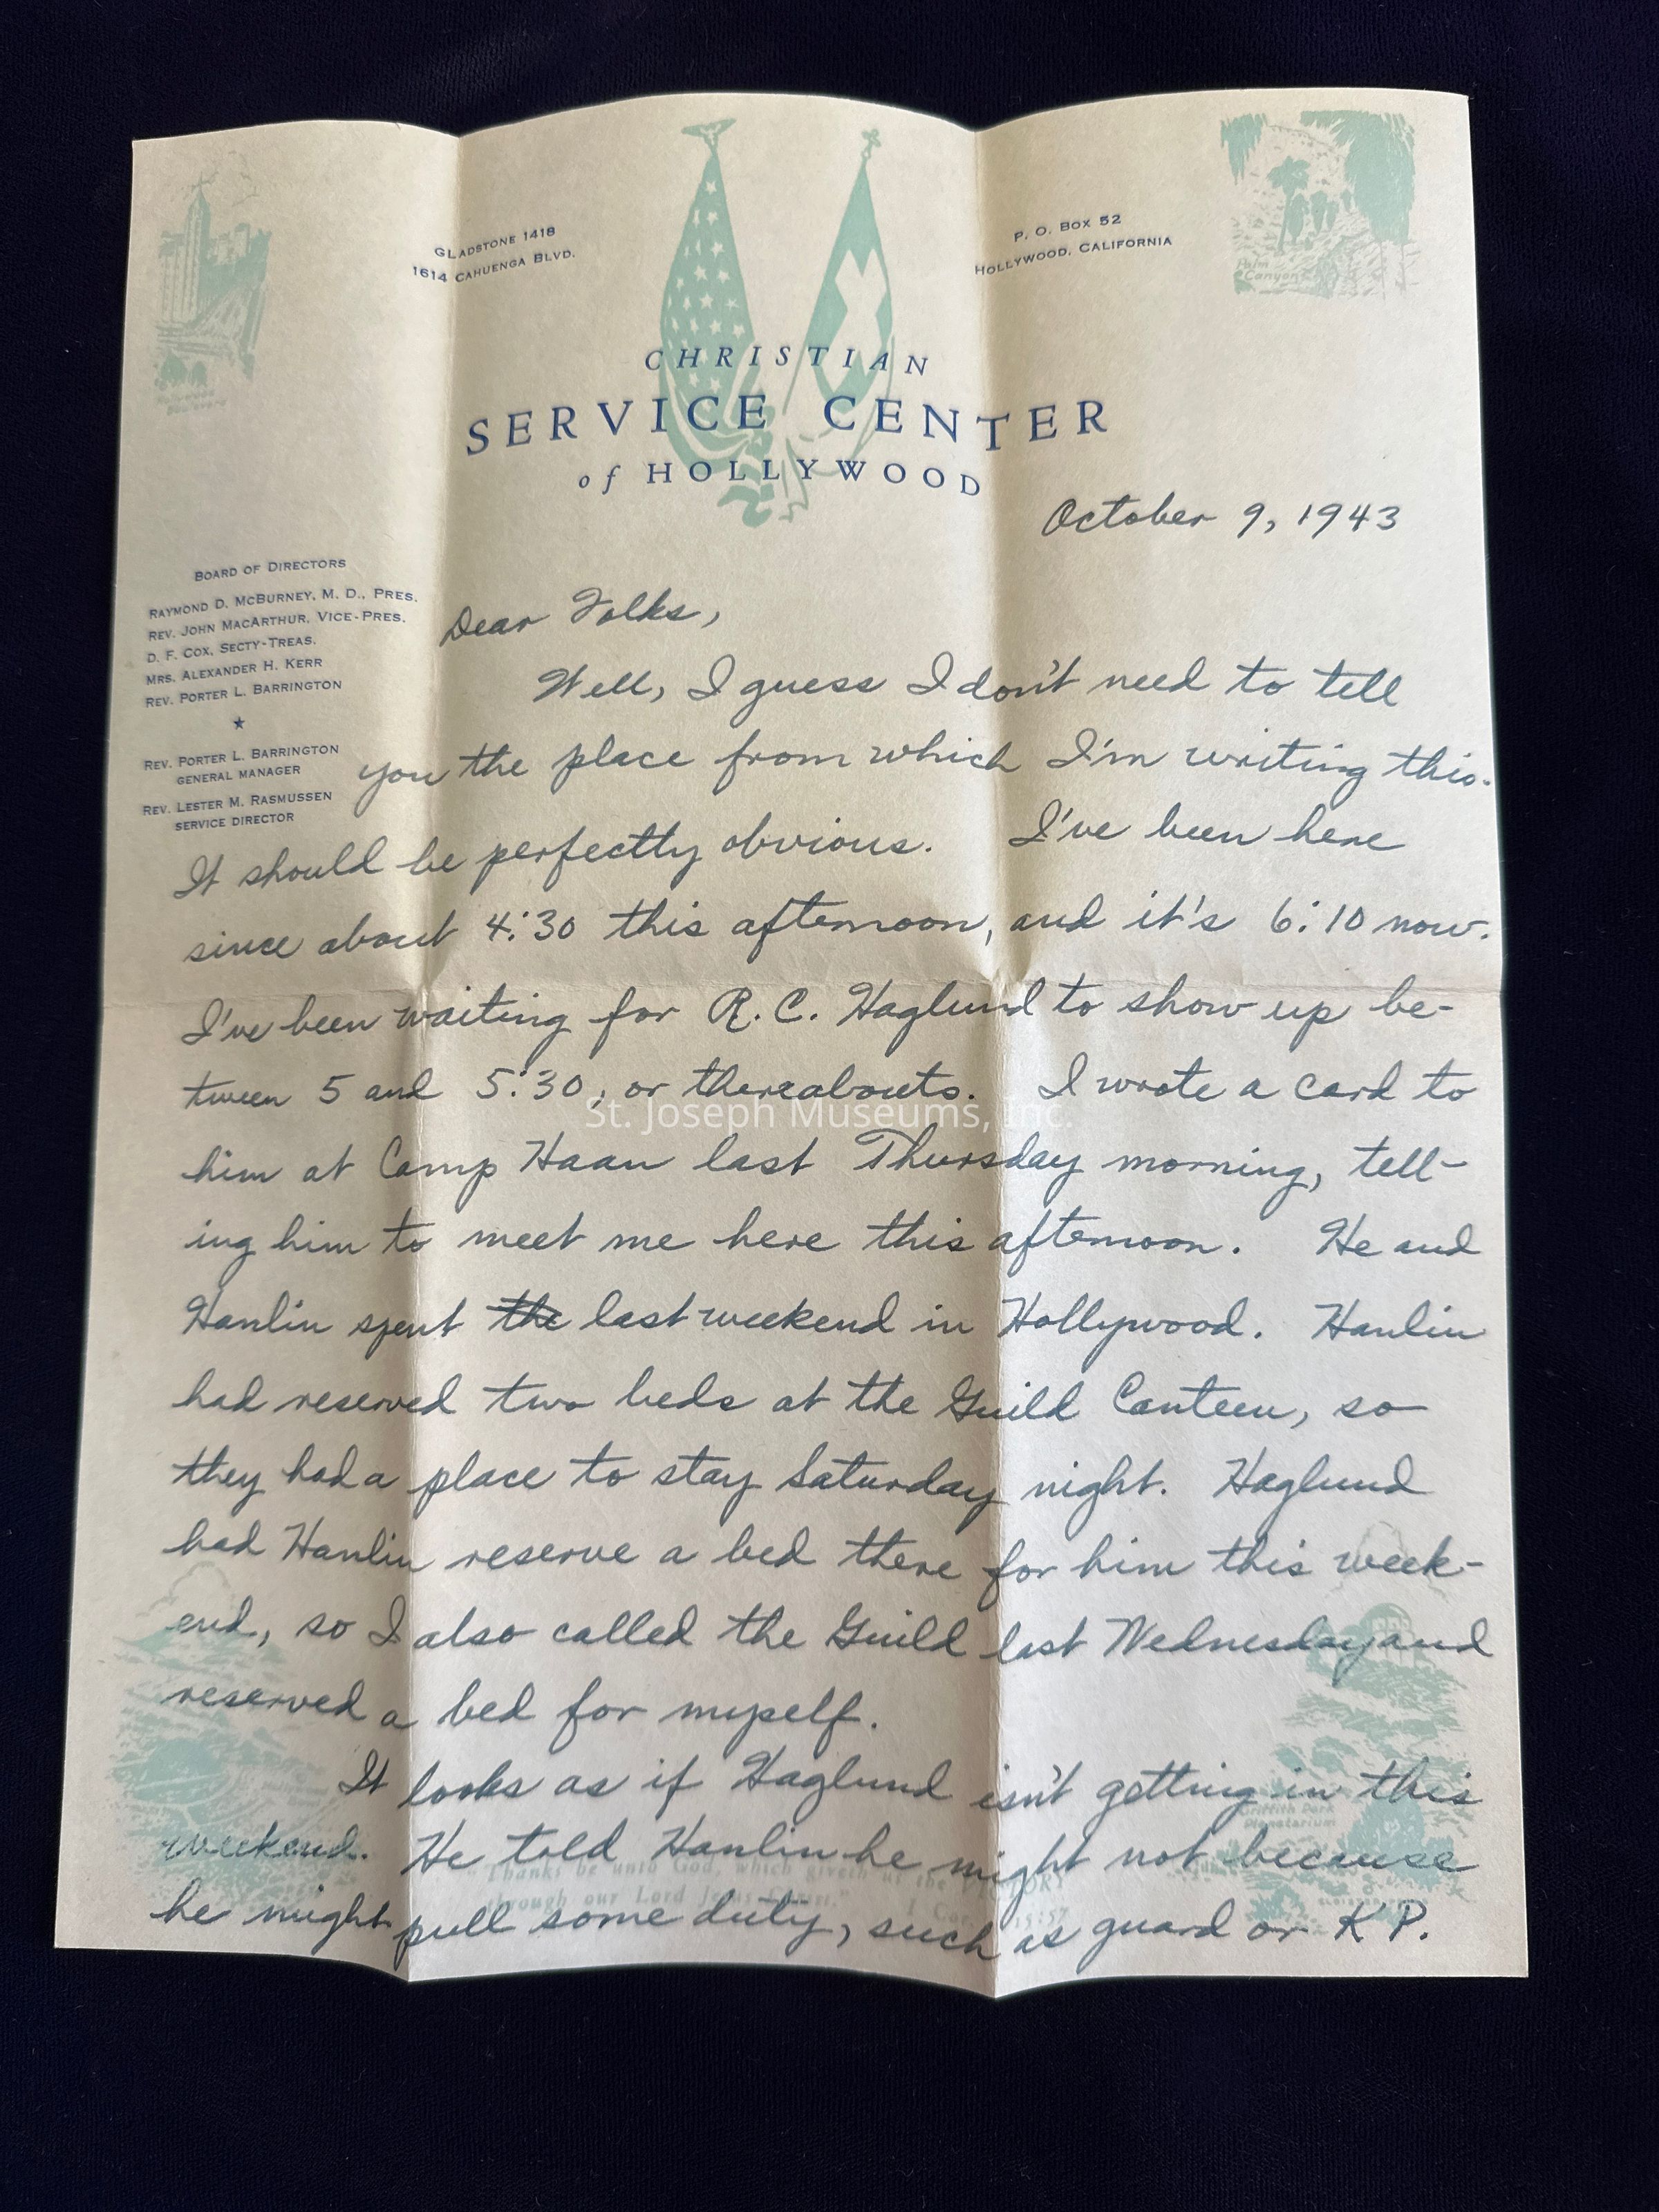 GLADSTONE 1418
1614 CAHUENGA BLVD.
P. O. BOX 52
HOLLYWOOD, CALIFORNIA
Palm
Canyon
CHRISTIAN
SERVICE CENTER
of HOLLYWOOD
October 9, 1943
BOARD OF DIRECTORS
RAYMOND D. MCBURNEY, M. D., PRES.
REV. JOHN MACARTHUR, VICE-PRES.
D. F. COX, SECTY-TREAS.
MRS. ALEXANDER H. KERR
REV. PORTER L. BARRINGTON
REV. PORTER L. BARRINGTON
GENERAL MANAGER
REV. LESTER M. RASMUSSEN
SERVICE DIRECTOR
Dear Folks,
Well, I guess I don't need to tell
you the place from which I'm writing this.
It should be perfectly obvious. I've been here
since about 4:30 this afternoon, and it's 6:10 now.
I've been waiting for R. C. Haglund to show up be-
tween 5 and 5:30, or thereabouts. I wrote a card to
St. Joseph Museums, Inc.
him at Camp Haan last Thursday morning, tell-
ing him to meet me here this afternoon. He and
Hanlin spent the last weekend in Hollywood. Hanlin
had reserved two beds at the Guild Canteen, so
they had a place to stay Saturday night. Haglund
had Hanlin reserve a bed there for him this week-
end, so I also called the Guild last Wednesday and
reserved a bed for myself.
It looks as if Haglund isn't getting in this
weekend. He told Hanlin he might not because
he might pull some duty, such as guard or KP.
Griffith Park
Planetarium
"Thanks be unto God, which giveth us the VICTORY
through our Lord Jesus Christ." I Cor. 15:57